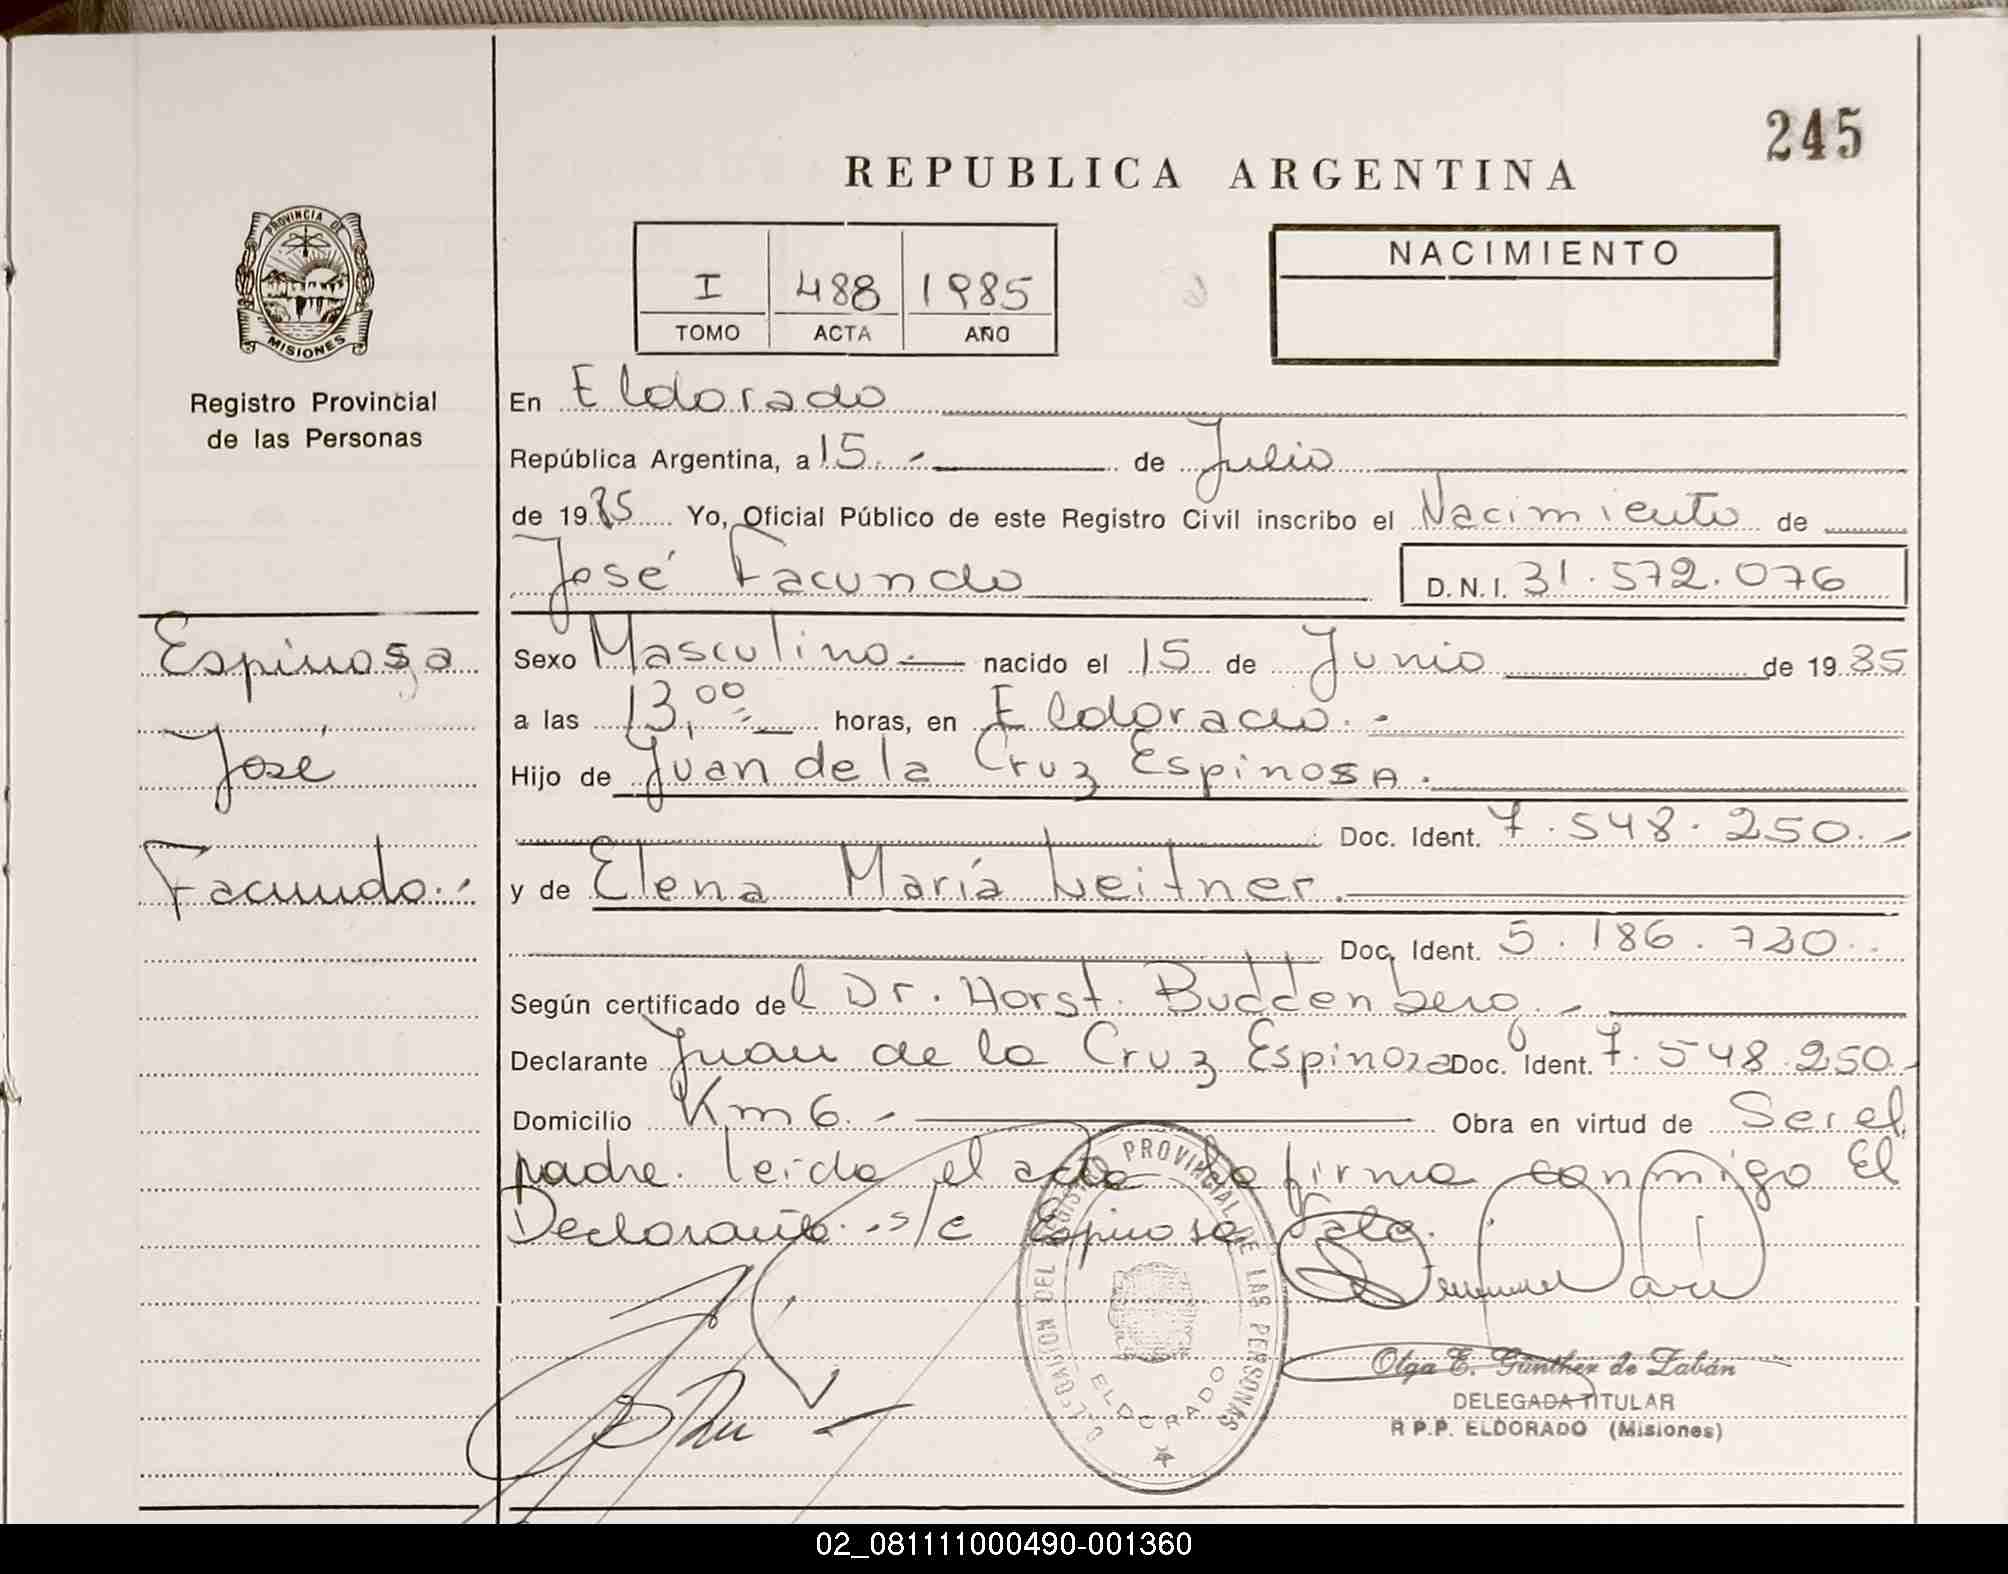 245
REPUBLICA ARGENTINA
PROVINCIA DE
MISIONES
Registro Provincial
de las Personas
I 488 1985
TOMO ACTA AÑO
NACIMIENTO
En Eldorado
República Argentina, a 15.- de Julio
de 1985 Yo, Oficial Público de este Registro Civil inscribo el Nacimiento de
José Facundo D.N.I. 31.572.076
Espinosa
José
Facundo.-
Sexo Masculino.— nacido el 15 de Junio de 1985
a las 13,00 horas, en Eldorado.-
Hijo de Juan de la Cruz Espinosa.
Doc. Ident. 7.548.250.-
y de Elena María Leitner.
Doc. Ident. 5.186.720..
Según certificado del Dr. Horst. Buddenberg.-
Declarante Juan de la Cruz Espinoza Doc. Ident. 7.548.250.-
Domicilio Km 6.- Obra en virtud de Ser el
padre. leida el acta la firma conmigo El
Declarante.-s/c Espinosa Vale.
DEL REGISTRO PROVINCIAL DE LAS PERSONAS
ELDORADO
Olga E. Günther de Zabán
DELEGADA TITULAR
R P.P. ELDORADO (Misiones)
02_081111000490-001360